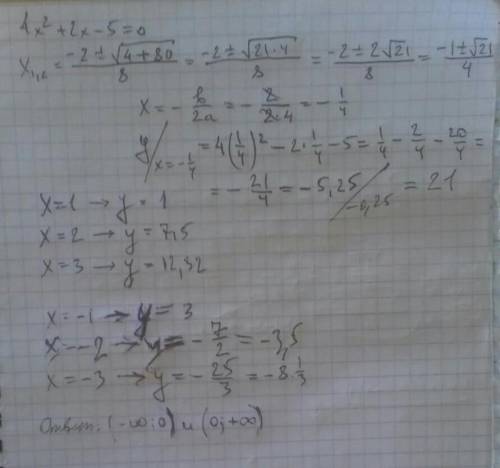 4x² + 2x - 5 = 0
x₁,₂ = (-2 ± √(4+80))/8 = (-2 ± √(21·4))/8 = (-2 ± 2√21)/8 = (-1 ± √21)/4
x = - b/2a = - 2/(2·4) = - 1/4
y/x=-1/4 = 4(1/4)² - 2·1/4 - 5 = 1/4 - 2/4 - 20/4 =
= - 21/4 = -5,25/-0,25 = 21
x=1 → y = 1
x=2 → y = 7,5
x=3 → y = 12,32
x=-1 → y = 3
x=-2 → y = - 7/2 = -3,5
x=-3 → y = - 25/3 = -8·1/3
Ответ: (-∞;0) и (0;+∞)